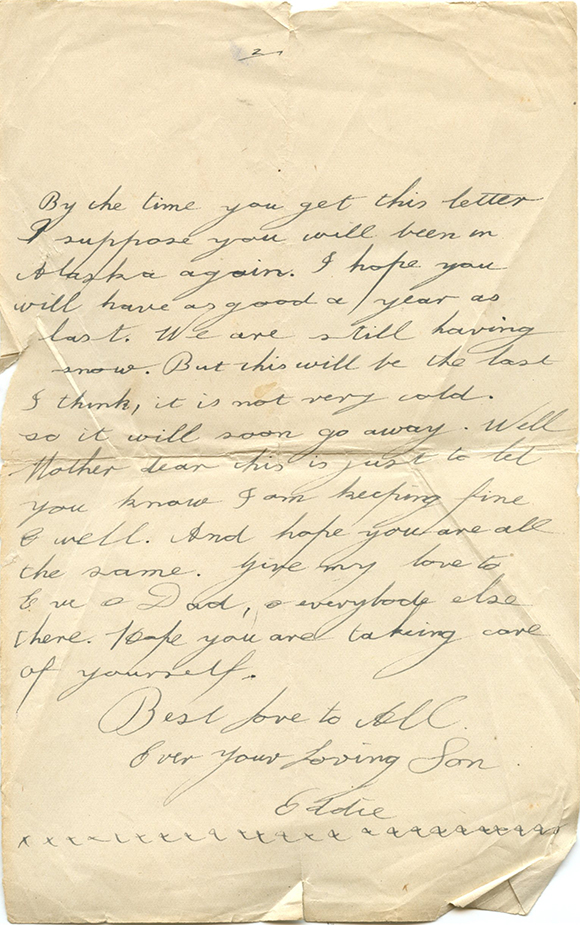 2
By the time you get this letter
I suppose you will been in
Alaska again. I hope you
will have as good a year as
last. We are still having
snow. But this will be the last
I think, it is not very cold.
so it will soon go away. Well
Mother dear this is just to let
you know I am keeping fine
& well. And hope you are all
the same. Give my love to
Eve & Dad, & everybody else
there. Hope you are taking care
of yourself.
Best love to All.
Ever Your Loving Son.
Eddie
x x x x x x x x x x x x x x x x x x x x x x x x